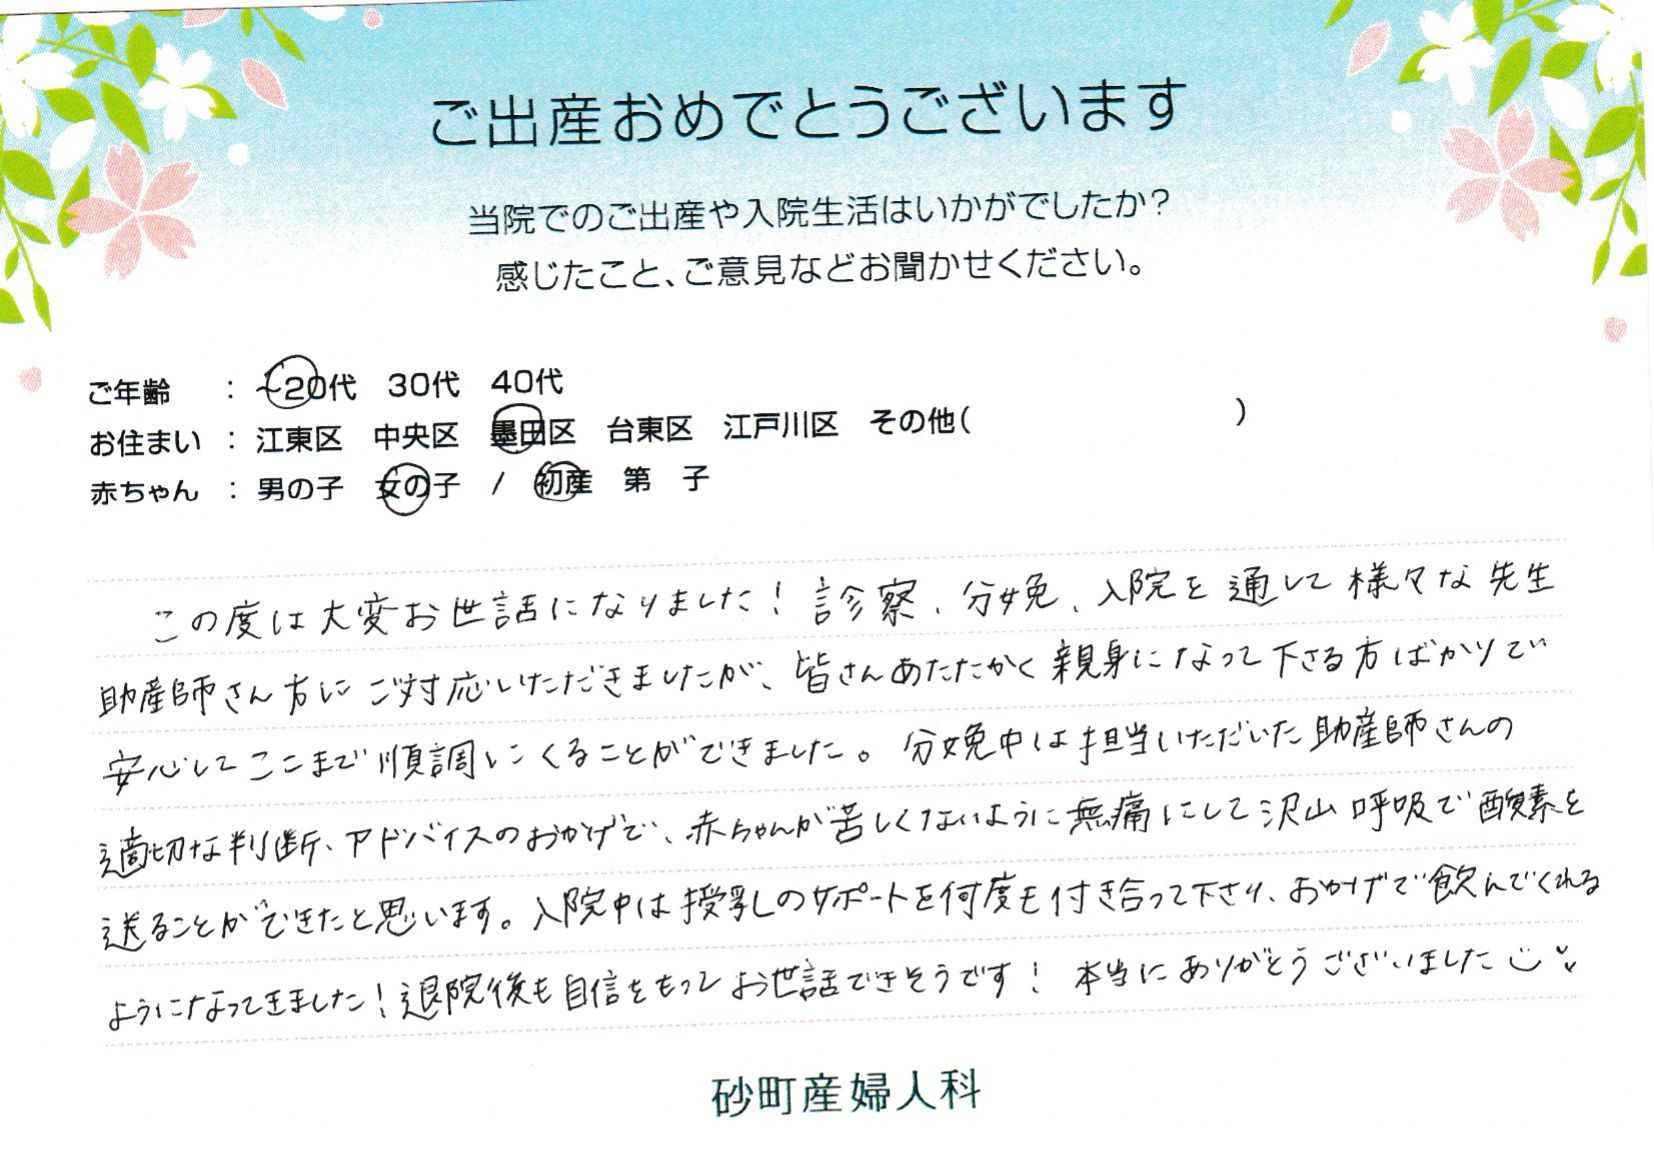 ご出産おめでとうございます
当院でのご出産や入院生活はいかがでしたか?
感じたこと、ご意見などお聞かせください。
ご年齢 : ~20代 30代 40代
お住まい : 江東区 中央区 墨田区 台東区 江戸川区 その他( )
赤ちゃん : 男の子 女の子 / 初産 第 子
この度は大変お世話になりました!診察、分娩、入院を通して様々な先生
助産師さん方にご対応いただきましたが、皆さんあたたかく親身になって下さる方ばかりで
安心してここまで順調にくることができました。分娩中は担当いただいた助産師さんの
適切な判断、アドバイスのおかげで、赤ちゃんが苦しくないように無痛にして沢山呼吸で酸素を
送ることができたと思います。入院中は授乳のサポートを何度も付き合って下さり、おかげで飲んでくれる
ようになってきました!退院後も自信をもってお世話できそうです!本当にありがとうございました
砂町産婦人科